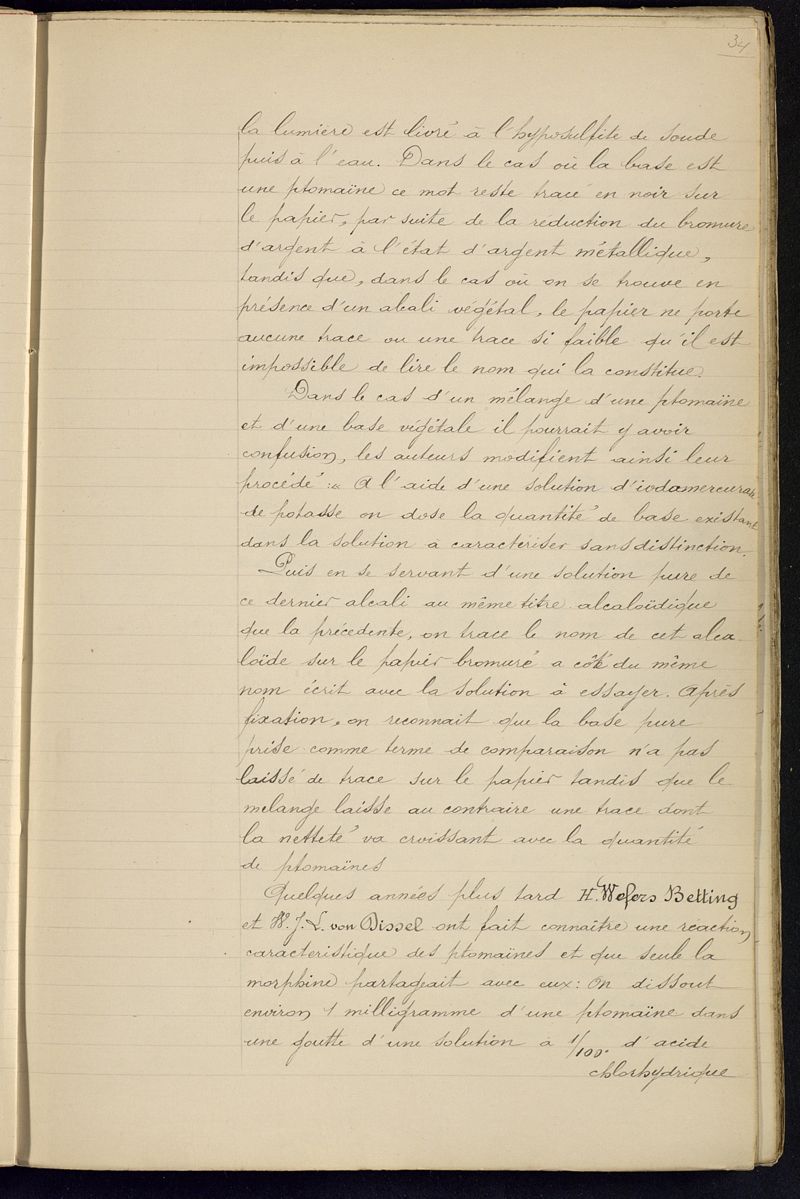 34
la lumière est livré à l'hyposulfite de soude
puis à l'eau. Dans le cas où la base est
une ptomaïne ce mot reste tracé en noir sur
le papier, par suite de la réduction du bromure
d'argent à l'état d'argent métallique,
tandis que, dans le cas où on se trouve en
présence d'un alcali végétal, le papier ne porte
aucune trace ou une trace si faible qu'il est
impossible de lire le nom qui la constitue.
Dans le cas d'un mélange d'une ptomaïne
et d'une base végétale il pourrait y avoir
confusion, les auteurs modifient ainsi leur
procédé : « A l'aide d'une solution d'iodamercurate
de potasse on dose la quantité de base existant
dans la solution a caractériser sans distinction.
Puis en se servant d'une solution pure de
ce dernier alcali au même titre alcaloïdique
que la précédente, on trace le nom de cet alca
loïde sur le papier bromuré a côté du même
nom écrit avec la solution à essayer. Après
fixation, on reconnait que la base pure
prise comme terme de comparaison n'a pas
laissé de trace sur le papier tandis que le
melange laisse au contraire une trace dont
la netteté va croissant avec la quantité
de ptomaïnes
Quelques années plus tard H. Wefers Betting
et W. J. L. von Dissel ont fait connaître une réaction
caracteristique des ptomaïnes et que seule la
morphine partageait avec eux : On dissout
environ 1 milligramme d'une ptomaïne dans
une goutte d'une solution à 1/100. d'acide
chlorhydrique